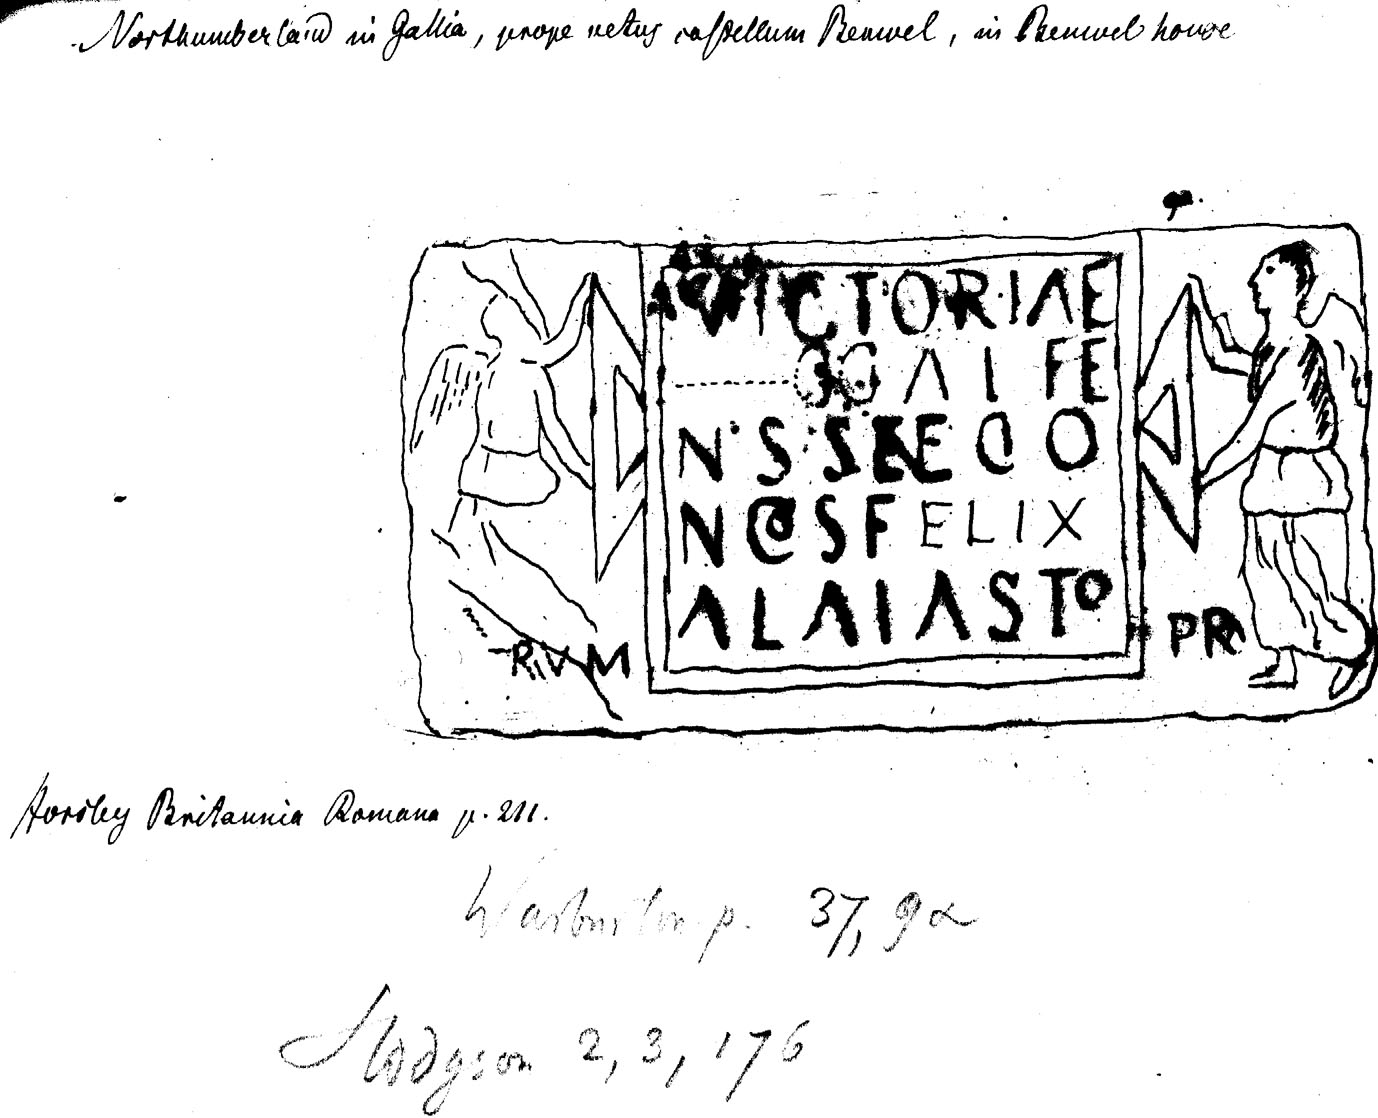 Northumberland in Gallia, prope vetus castellum Benwel, in Benwel house
VICTORIAE
GG ALFE
N S SENECIO
N COS FELIX
ALA I ASTO
RVM PR
Horsley Britannia Romana p. 211.
Warburton p. 37, 92
Hodgson 2, 3, 176